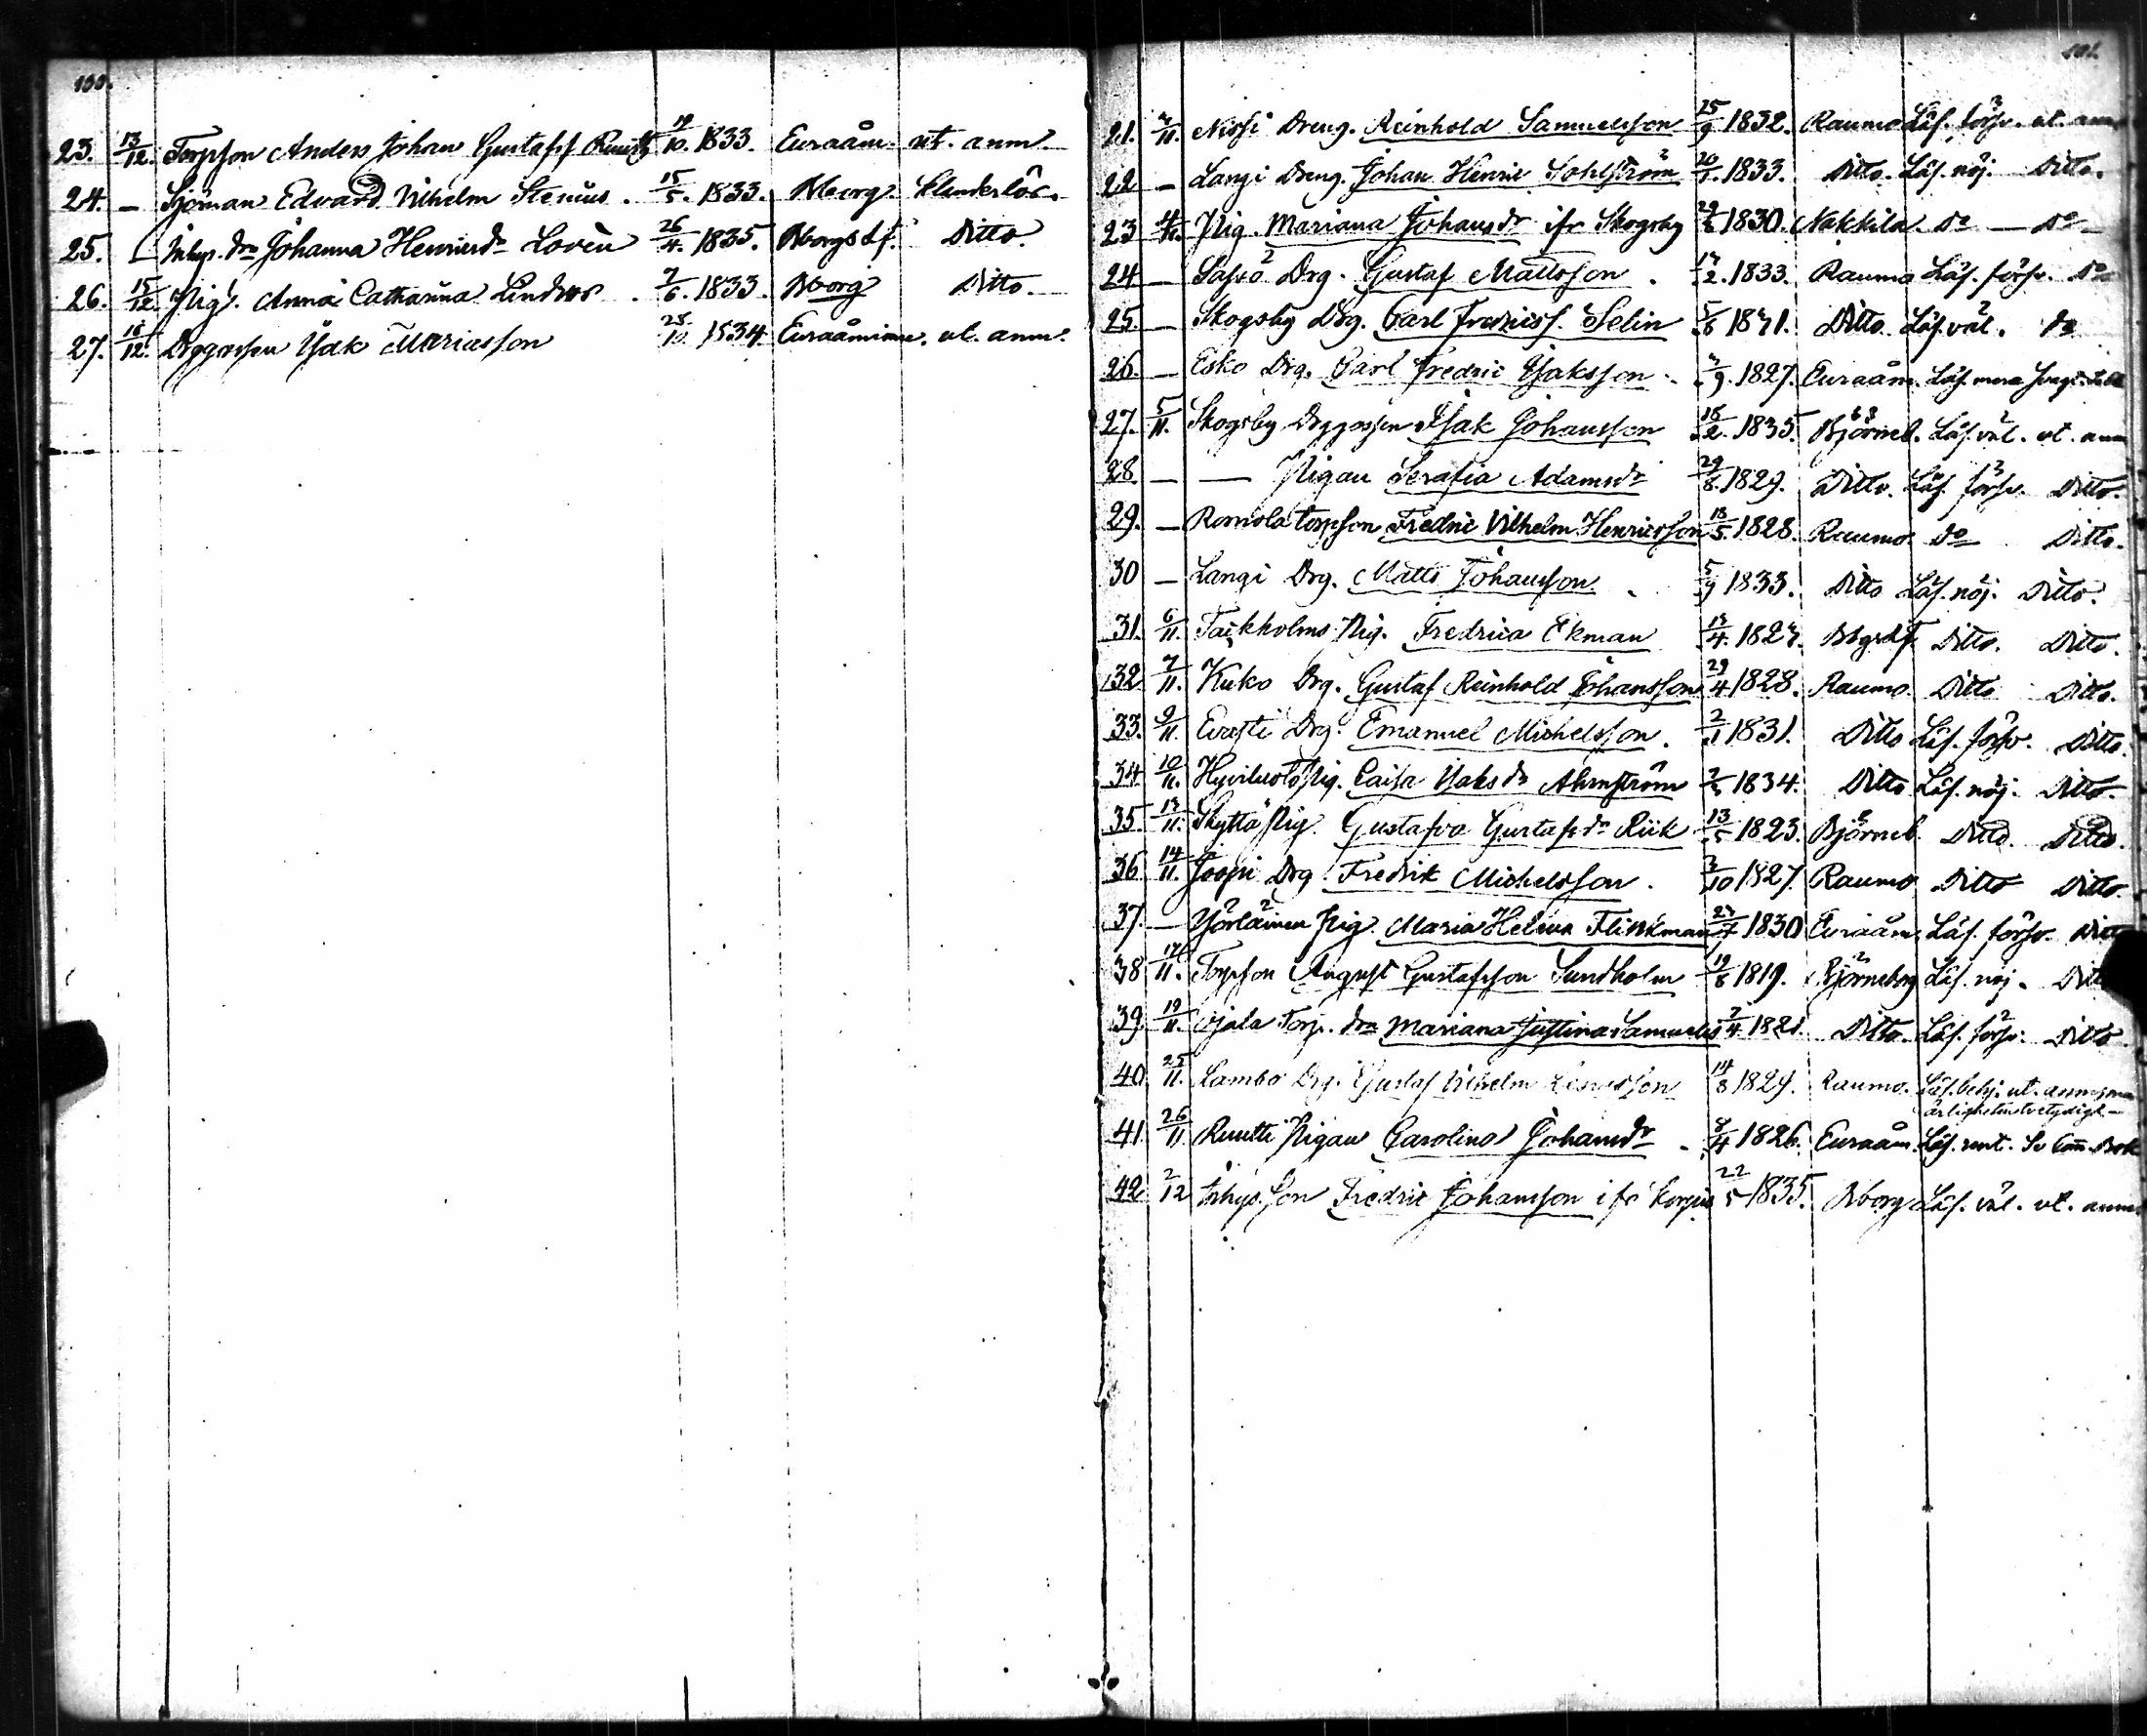 100.
23. 13/12. Torpson Anders Johan Gustafss 19/10. 1833. Euraåm. ut. anm.
24. — Sjöman Edvard Vilhelm Stenius. 15/5. 1833. Bborg. klanderlös.
25. Inhys. dr Johanna Henricsdr Lovén 26/4. 1835. Bborgs Lf. Ditto.
26. 15/12. Pig. Anna Catharina Lindroos. 7/6. 1833. Bborg Ditto.
27. 18/12. Drggossen Isak Mariasson 25/10. 1834. Euraåminne. ut. anm.
101.
21. 2/11. Nissi Dreng. Reinhold Samuelsson 25/9 1832. Raumo Läs. försv. ut. anm
22 — Langi Dreng. Johan Henric Sohlström 1833. Ditto. Läs. nöj. Ditto.
23 4/11. Pig. Mariana Johansdr ifr Skogsby 1830. Nakkila. Do — Do
24 — Salvo Drg. Gustaf Mattsson. 1833. Raumo Läs. försv. Do
25. — Skogsby Drg. Carl Fredricss. Selin Ditto. Läs. väl. Do
26. — Esko Drg. Carl Fredric Isaksson. 1827. Euraåm. Läs.
27. 5/11. Skogsby Drggossen Isak Johansson 1835. Björneb. Läs. väl. ut. anm
28 — — Pigan Serafia Adamsdr 29/8. 1829. Ditto. Läs. försv. Ditto.
29. — Romola torpson Fredric Vilhelm Henricsson 18/5. 1828. Raumo Do Ditto.
30 — Langi Drg. Matts Johansson. 5/9 1833. Ditto Läs. nöj. Ditto.
31. 6/11. Tackholms Pig. Fredrica Ekman Ditto. Ditto.
32 7/11. Kuko Drg. Gustaf Reinhold Johansson 29/4 1828. Raumo. Ditto Ditto.
33. 9/11. Evasti Drg. Emanuel Michelsson. 1831. Ditto Läs. försv. Ditto.
34 10/11. Pig. Caisa Isaksdr Almström 1834. Ditto Läs. nöj. Ditto.
35 13/11. Skyttä Pig. Gustafva Gustafsdr Riik 13/5 1823. Björneb. Ditto. Ditto.
36 14/11. Joopi Drg. Fredrik Michelsson. 3/10 1827. Raumo Ditto Ditto.
37. — Yörläinen Pig. Maria Helena Flinkman 1830 Euraåm. Läs. försv. Ditto
38 17/11. Torpson August Gustafsson Sundholm 19/8 1819. Björneborg Läs. nöj. Ditto
39. 19/11. Ojala Torp. dr Mariana Justina Samuels 7/4. 1821. Ditto. Läs. försv. Ditto.
40 25/11. Lambo Drg. Gustaf Vilhelm 14/8 1829. Raumo. Läs. behj. ut. anm.
41 26/11 Ruutti Pigan Carolina Johansdr 8/4 1826. Euraåm. Läs.
42 2/12 Inhys. son Fredric Johansson ifr 22/5 1835. Bborg Läs. väl. ut. anm